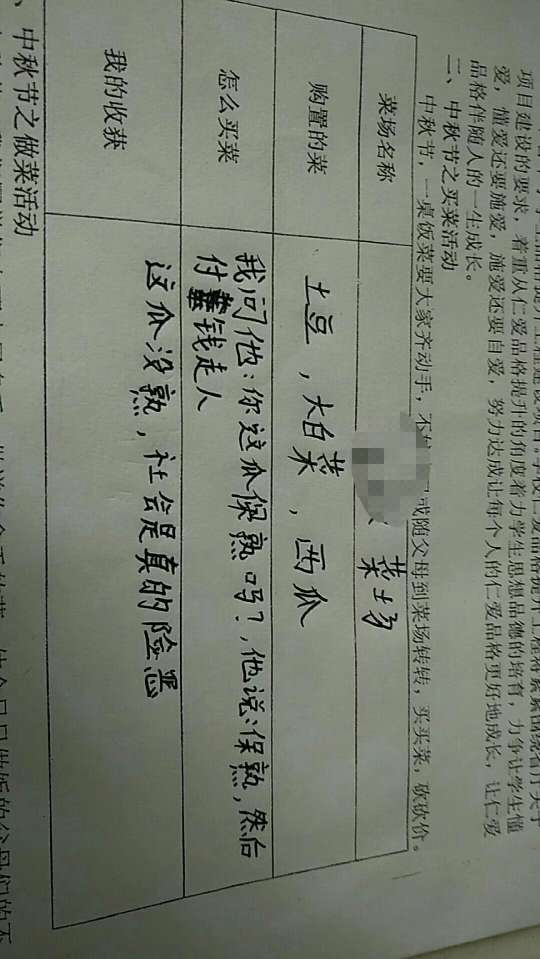 项目建设的要求，着重从仁爱品格提升的角度着力学生思想品德的培育，力争让学生懂
爱，懂爱还要施爱，施爱还要自爱，努力达成让每个人的仁爱品格更好地成长，让仁爱
品格伴随人的一生成长。
二、中秋节之买菜活动
中秋节，一桌饭菜要大家齐动手，不
或随父母到菜场转转，买买菜，砍砍价。
菜场名称
菜场
购置的菜
土豆，大白菜，西瓜
怎么买菜
我问他：你这瓜保熟吗？，他说：保熟，然后
付钱走人
我的收获
这瓜没熟，社会是真的险恶
、中秋节之做菜活动